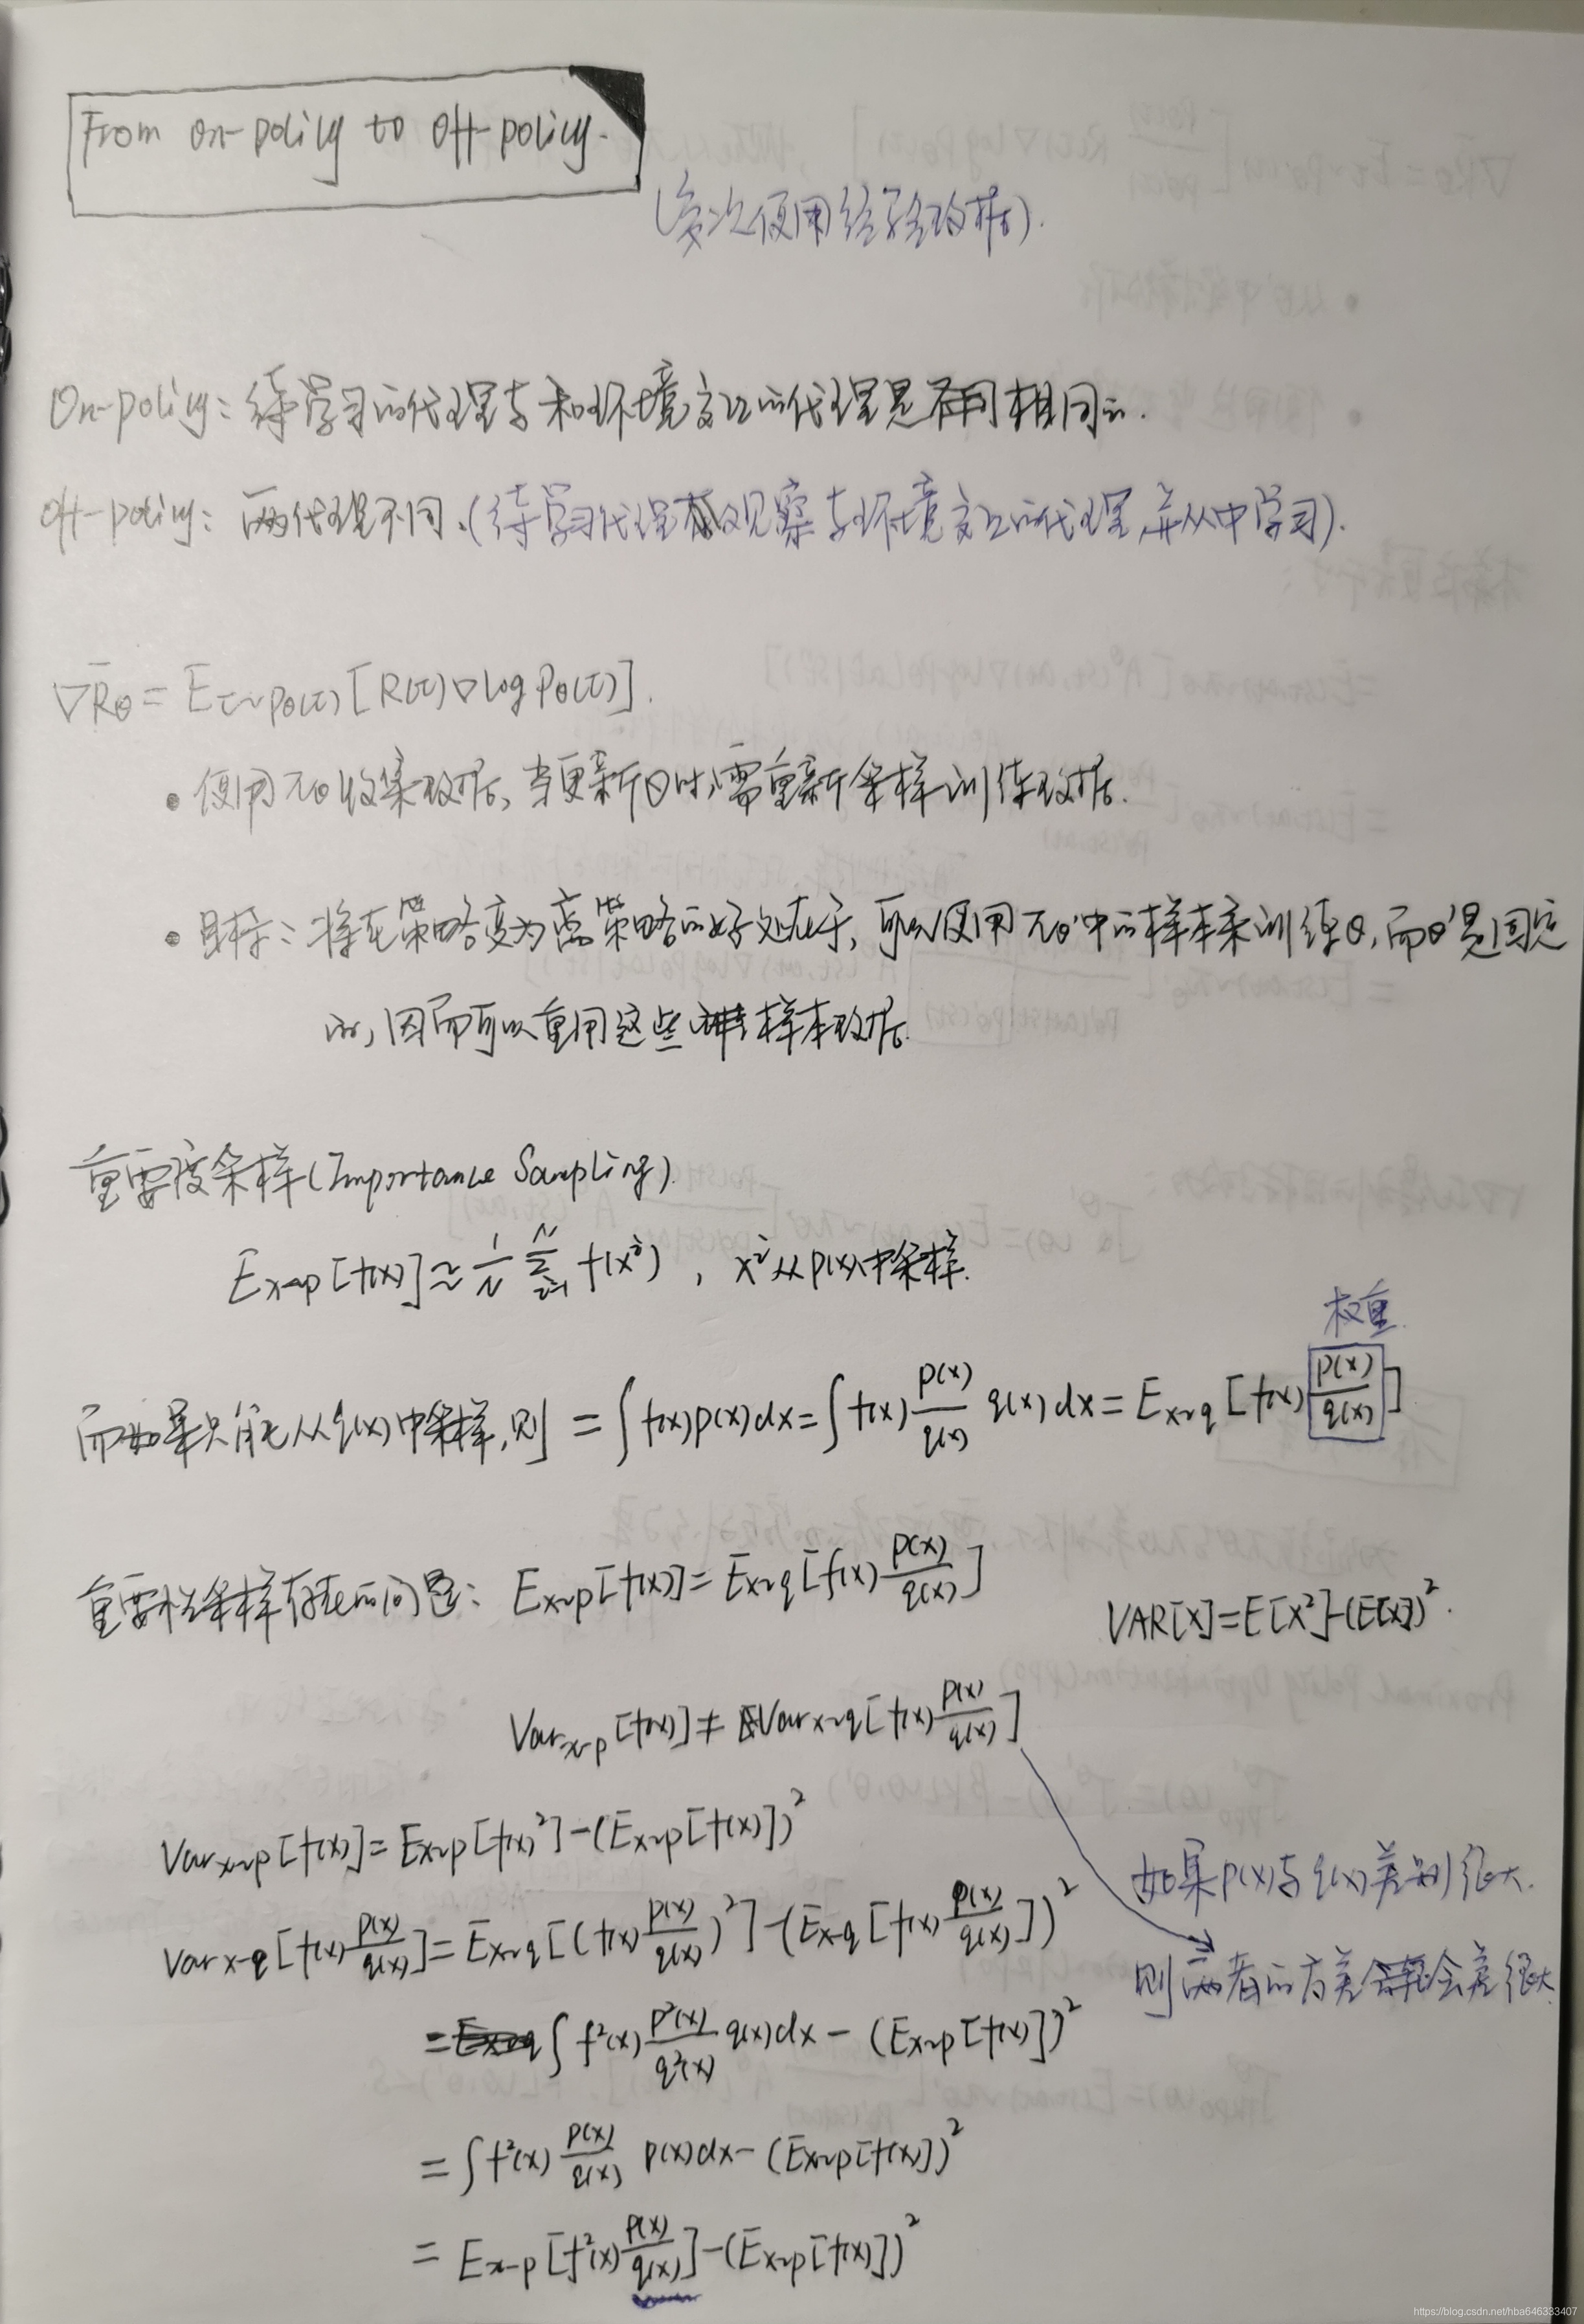 From on-policy to off-policy.
(多次使用经验数据).
On-policy: 待学习的代理与和环境交互的代理是相同的.
off-policy: 两代理不同.(待学习代理观察与环境交互的代理,并从中学习).
∇R̄θ = E_{τ~pθ(τ)}[R(τ)∇log pθ(τ)].
• 使用πθ收集数据, 当更新θ时, 需重新采样训练数据.
• 目标: 将在策略变为离策略的好处在于, 可以使用πθ'中的样本来训练θ, 而θ'是固定
的, 因而可以重用这些样本数据.
重要度采样(Importance Sampling).
E_{x~p}[f(x)] ≈ 1/N Σ_{i=1}^{N} f(x^i) , x^i从p(x)中采样.
权重.
而如果只能从q(x)中采样,则 = ∫f(x)p(x)dx = ∫f(x) p(x)/q(x) q(x)dx = E_{x~q}[f(x) p(x)/q(x)]
重要性采样存在的问题: E_{x~p}[f(x)] = E_{x~q}[f(x) p(x)/q(x)]
VAR[X]=E[X²]-(E[X])².
Var_{x~p}[f(x)] ≠ Var_{x~q}[f(x) p(x)/q(x)]
Var_{x~p}[f(x)] = E_{x~p}[f(x)²] - (E_{x~p}[f(x)])²
如果p(x)与q(x)差别很大.
Var_{x~q}[f(x) p(x)/q(x)] = E_{x~q}[(f(x) p(x)/q(x))²] - (E_{x~q}[f(x) p(x)/q(x)])²
则两者的方差会差很大
= ∫f²(x) p²(x)/q²(x) q(x)dx - (E_{x~p}[f(x)])²
= ∫f²(x) p(x)/q(x) p(x)dx - (E_{x~p}[f(x)])²
= E_{x~p}[f²(x) p(x)/q(x)] - (E_{x~p}[f(x)])²
https://blog.csdn.net/hba646333407